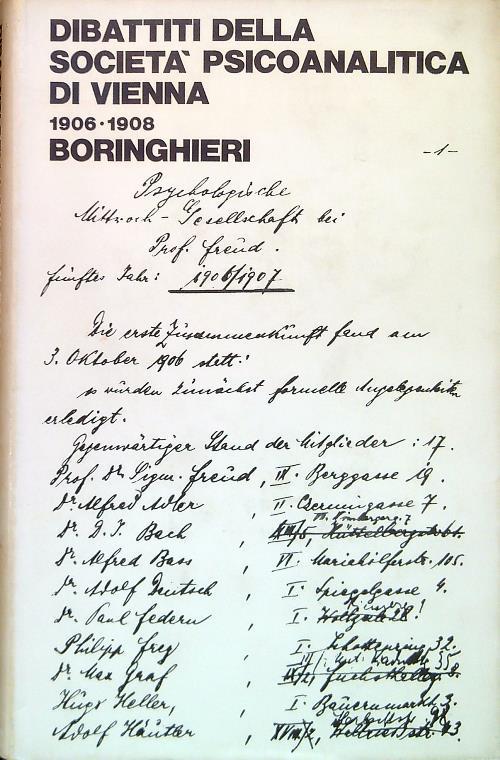 DIBATTITI DELLA
SOCIETA` PSICOANALITICA
DI VIENNA
1906·1908
BORINGHIERI
-1-
Psychologische
Mittwoch-Gesellschaft bei
Prof. Freud.
fünftes Jahr: 1906/1907
Die erste Zusammenkunft fand am
3. Oktober 1906 statt:
es wurden zunächst formelle Angelegenheiten
erledigt.
Gegenwärtiger Stand der Mitglieder: 17.
Prof. Dr Sigm. Freud, IX. Berggasse 19.
Dr Alfred Adler, II. Czerningasse 7.
Dr. D. J. Bach,
Dr. Alfred Bass, VI. Mariahilferstr. 105.
Dr. Adolf Deutsch, I. Spiegelgasse 4.
Dr. Paul Federn, I.
Philipp Frey, I. Schottenring 32.
Dr. Max Graf,
Hugo Heller, I. Bauernmarkt 3.
Adolf Häutler,